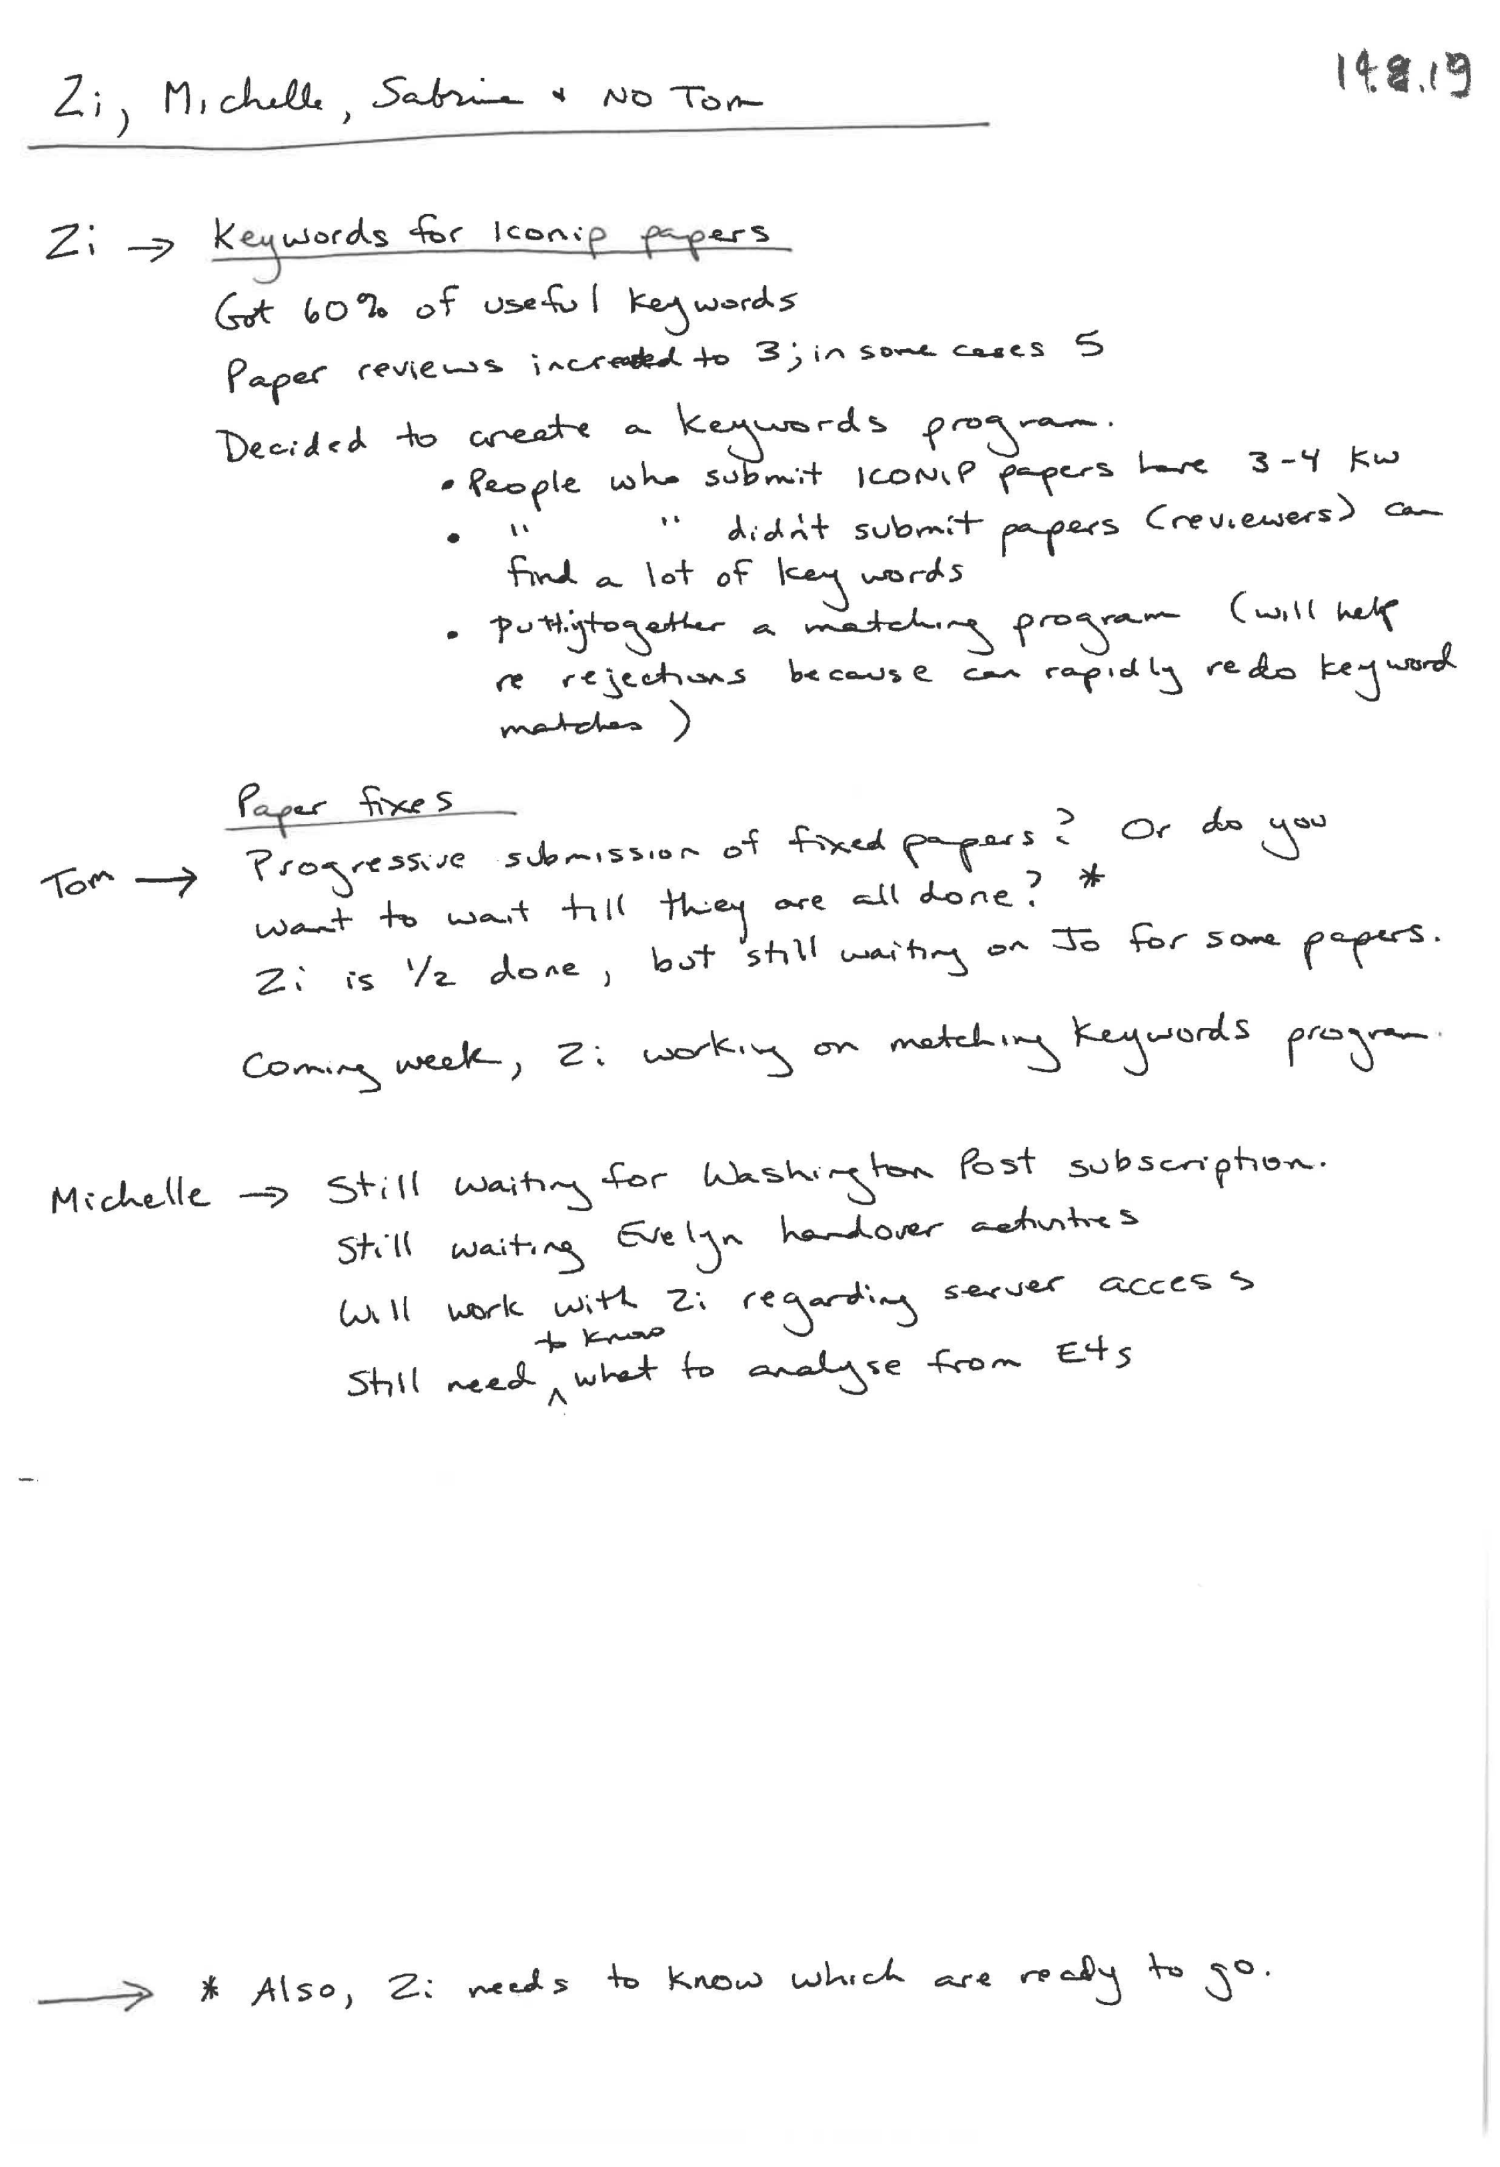 14.8.19
Zi, Michelle, Sabrina + NO Tom
Zi → Keywords for Iconip papers
Got 60% of useful keywords
Paper reviews increased to 3; in some cases 5
Decided to create a keywords program.
• People who submit ICONIP papers have 3-4 KW
• " " didn't submit papers (reviewers) can
find a lot of key words
• Putting together a matching program (will help
re rejections because can rapidly redo keyword
matches)
Paper fixes
Tom → Progressive submission of fixed papers? Or do you
want to wait till they are all done? *
Zi is 1/2 done, but still waiting on Jo for some papers.
Coming week, Zi working on matching keywords program.
Michelle → Still waiting for Washington Post subscription.
Still waiting Evelyn handover activities
Will work with Zi regarding server access
to know
Still need ^ what to analyse from E4s
→ * Also, Zi needs to know which are ready to go.